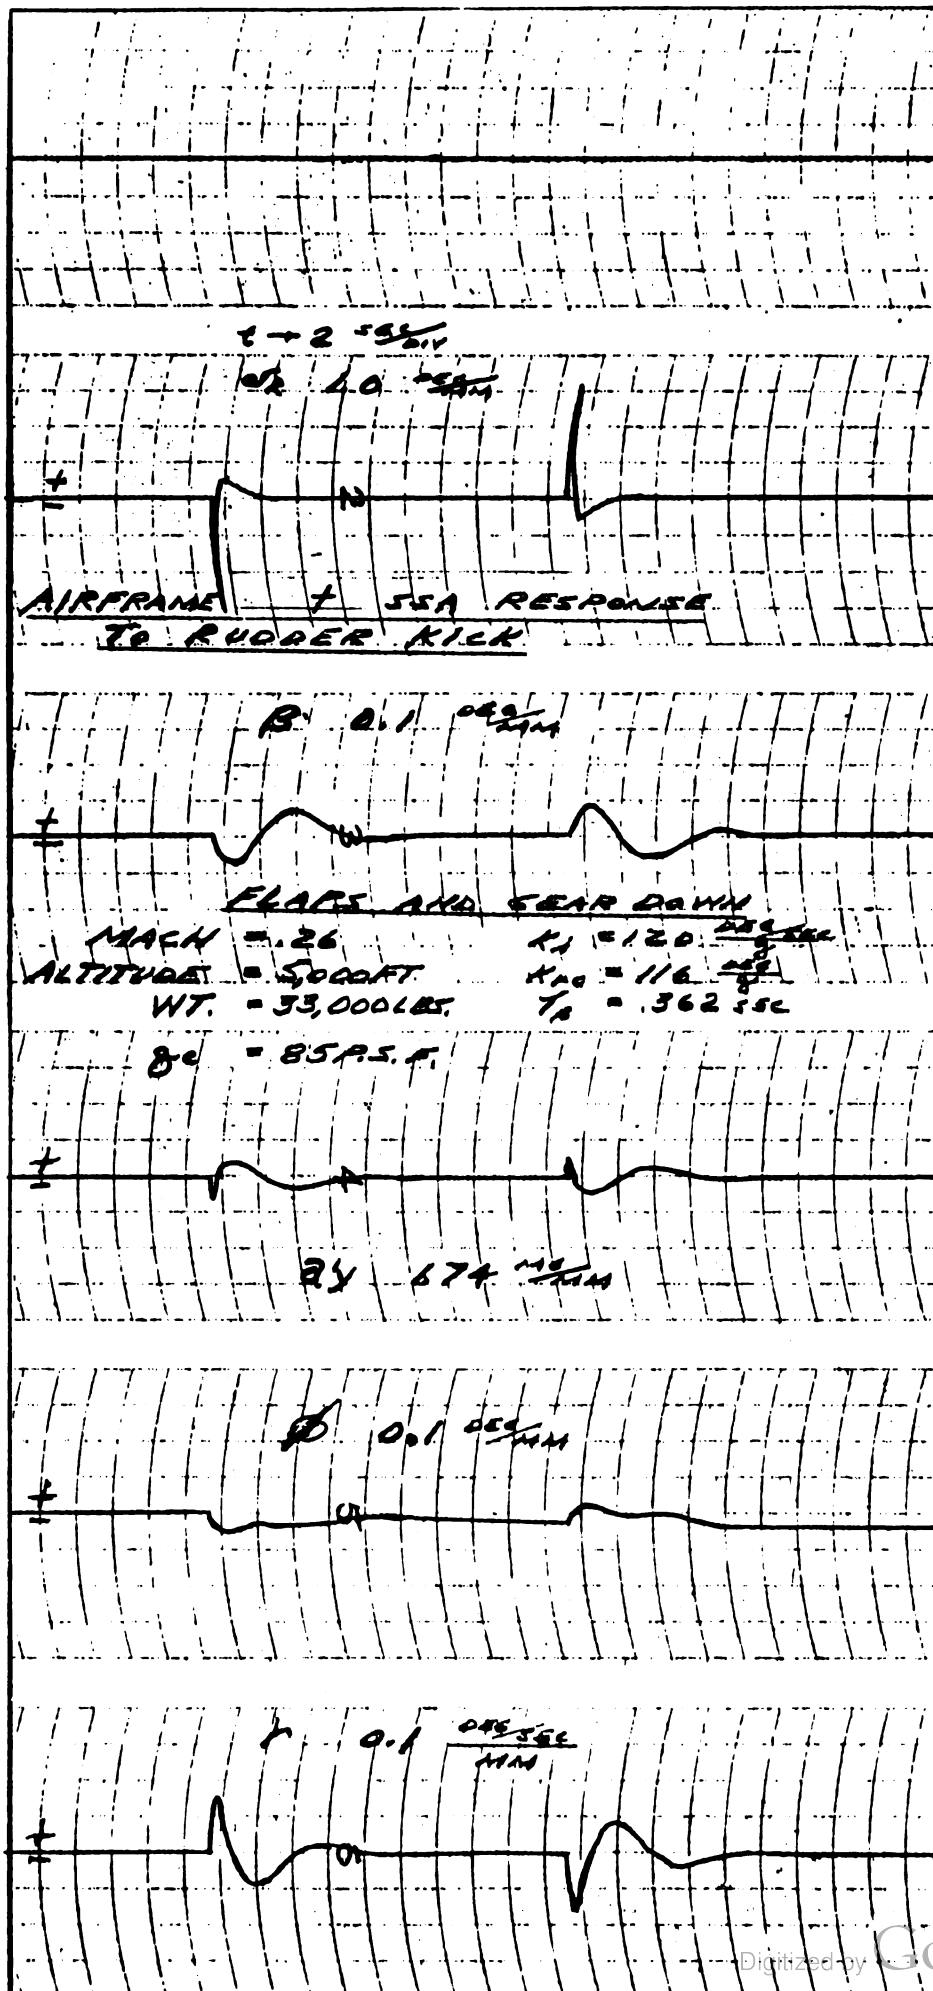 t → 2 SEC/DIV
δR 1.0 DEG/MM
+
-
2
AIRFRAME + SSA RESPONSE
TO RUDDER KICK
β 0.1 DEG/MM
+
-
3
FLAPS AND GEAR DOWN
MACH = .26
ALTITUDE = 5,000FT.
WT. = 33,000LBS.
qc = 85 P.S.F.
= 120 DEG/SEC/g
= 116 DEG/g
= .362 SEC
+
-
4
ay 674 /MM
Ø 0.1 DEG/MM
+
-
5
r 0.1 DEG/SEC/MM
+
-
6
Digitized by Go